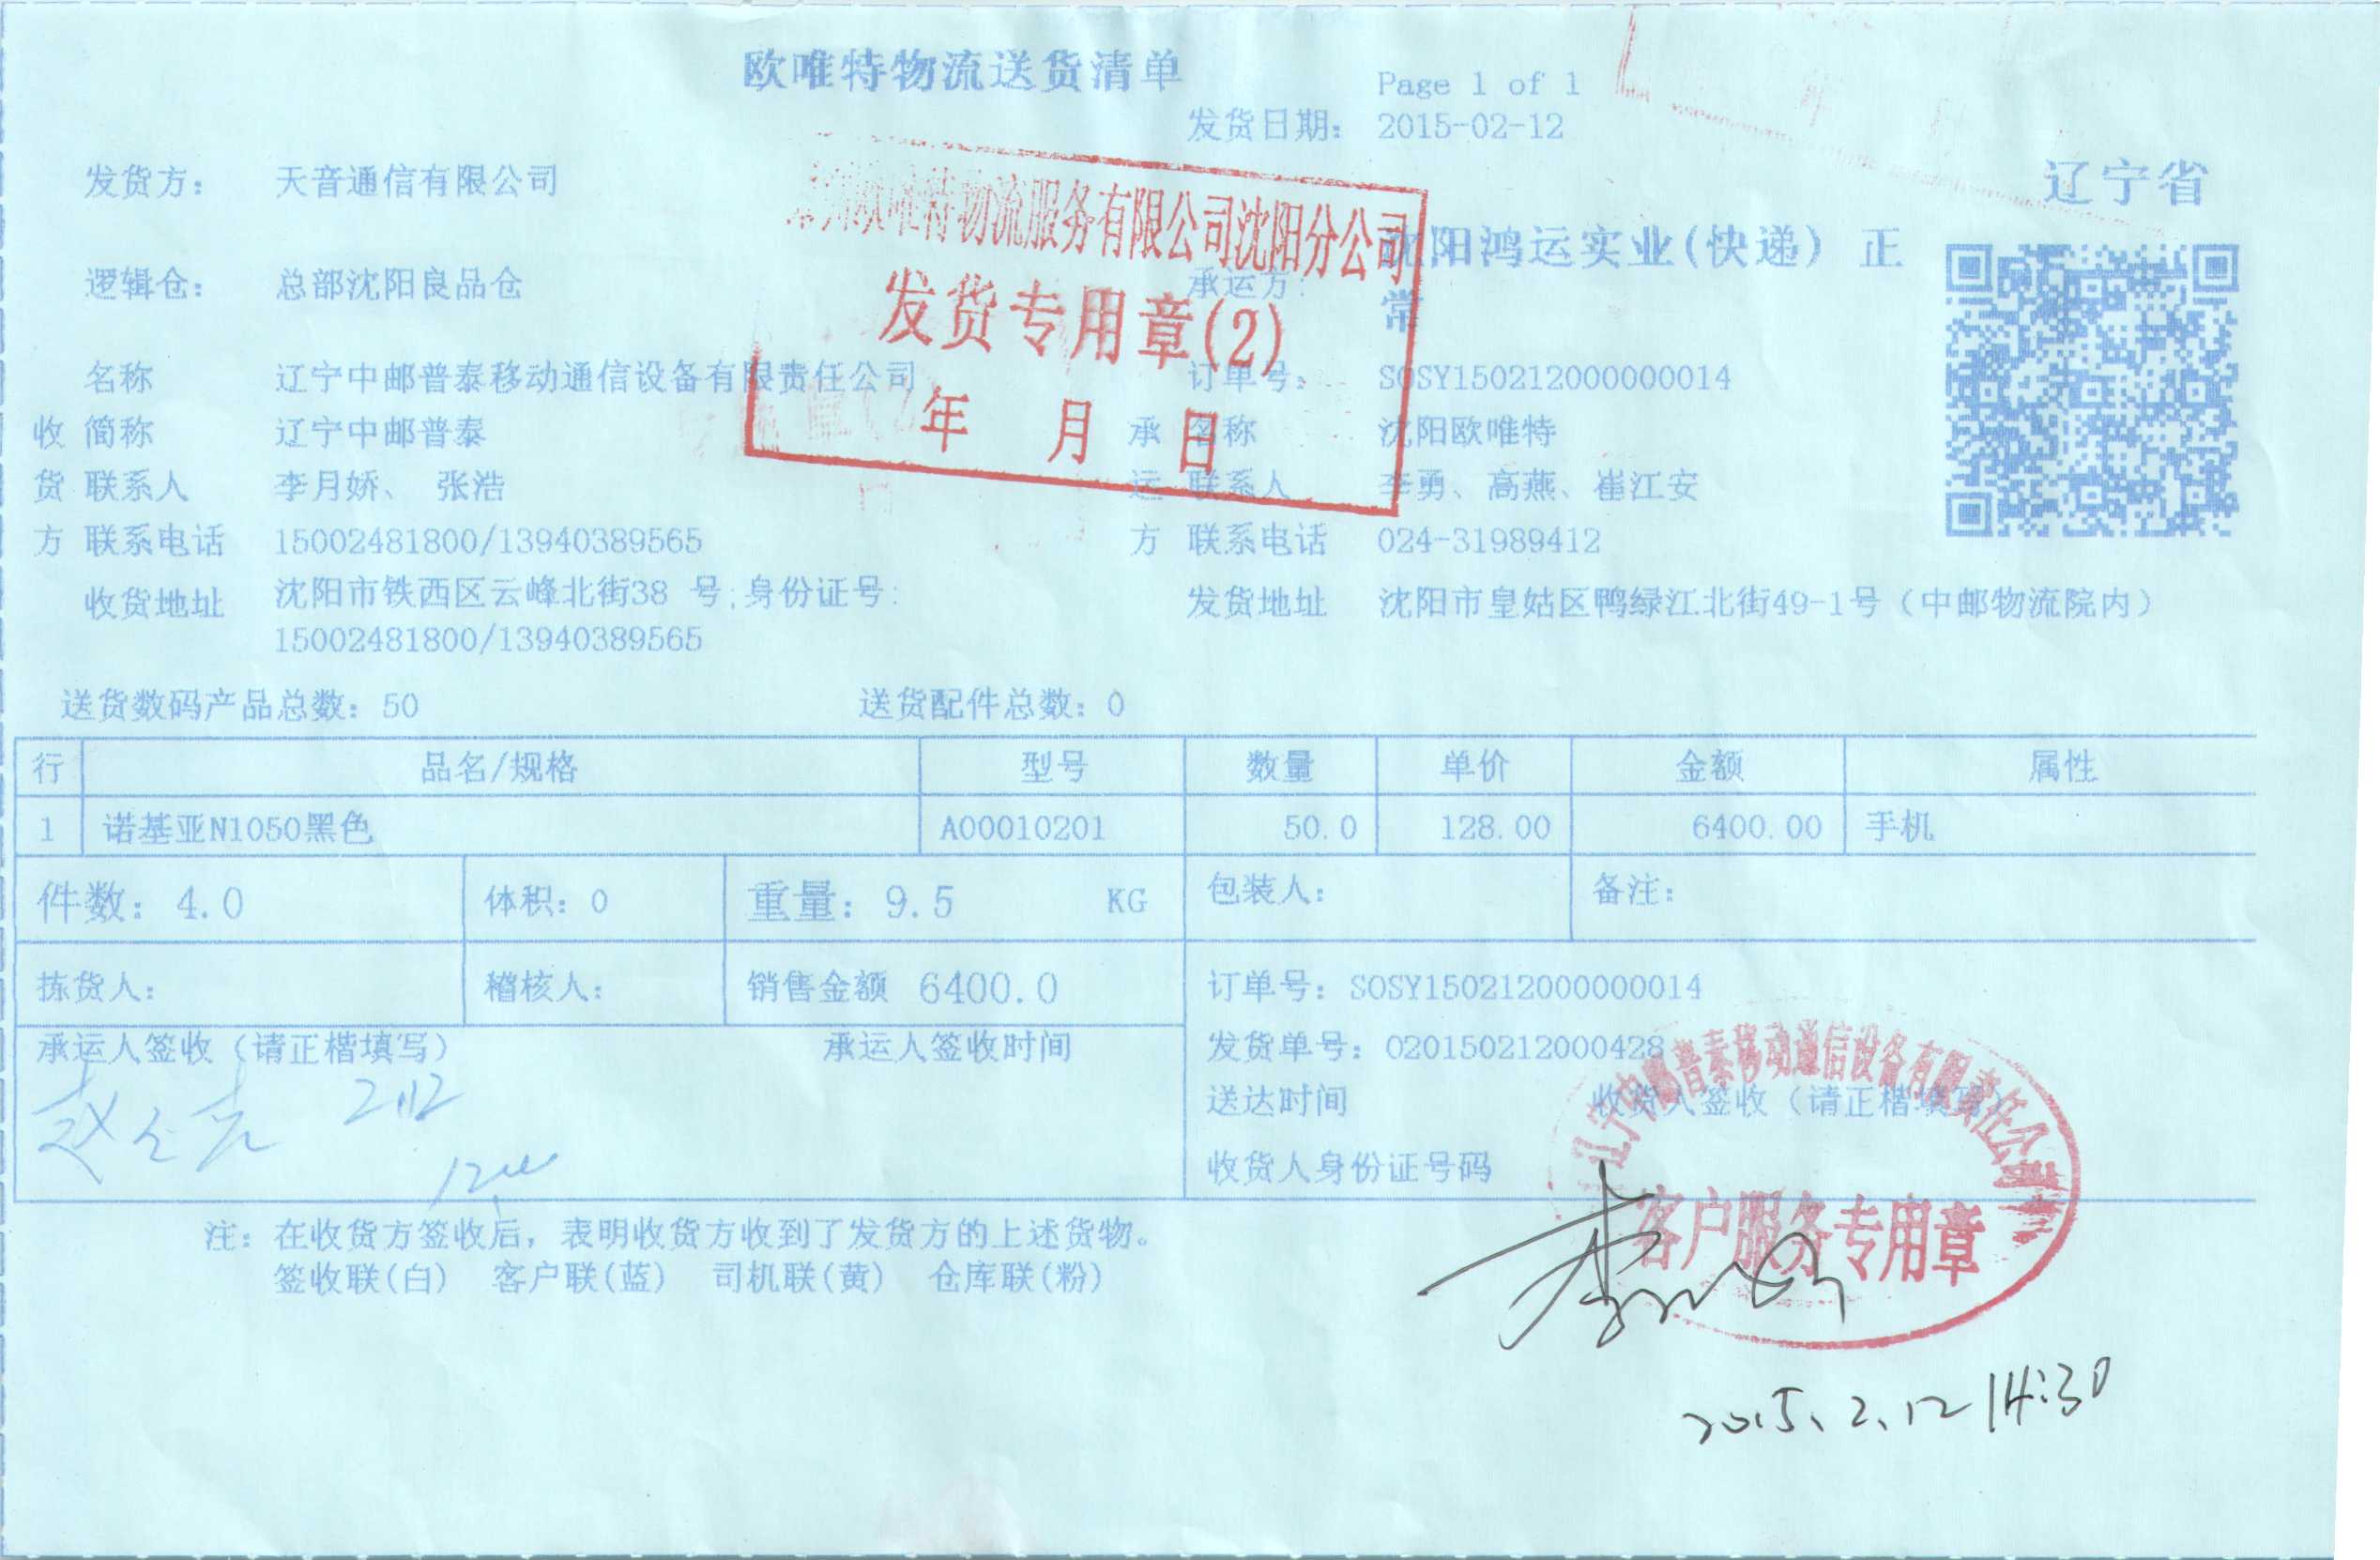 欧唯特物流送货清单
Page 1 of 1
发货日期: 2015-02-12
发货方: 天音通信有限公司
辽宁省
欧唯特物流服务有限公司沈阳分公司
发货专用章(2)
年 月 日
逻辑仓: 总部沈阳良品仓
承运方: 沈阳鸿运实业(快递) 正常
名称 辽宁中邮普泰移动通信设备有限责任公司
订单号: SOSY150212000000014
收 简称 辽宁中邮普泰
承 名称 沈阳欧唯特
货 联系人 李月娇、 张浩
运 联系人 李勇、高燕、崔江安
方 联系电话 15002481800/13940389565
方 联系电话 024-31989412
收货地址 沈阳市铁西区云峰北街38 号;身份证号:
15002481800/13940389565
发货地址 沈阳市皇姑区鸭绿江北街49-1号（中邮物流院内）
送货数码产品总数: 50 送货配件总数: 0
行 品名/规格 型号 数量 单价 金额 属性
1 诺基亚N1050黑色 A00010201 50.0 128.00 6400.00 手机
件数: 4.0 体积: 0 重量: 9.5 KG 包装人: 备注:
拣货人: 稽核人: 销售金额 6400.0 订单号: SOSY150212000000014
承运人签收（请正楷填写） 承运人签收时间
发货单号: 020150212000428
送达时间 收货人签收（请正楷填写）
收货人身份证号码
辽宁中邮普泰移动通信设备有限责任公司
客户服务专用章
注: 在收货方签收后，表明收货方收到了发货方的上述货物。
签收联(白) 客户联(蓝) 司机联(黄) 仓库联(粉)
2015.2.12 14:30